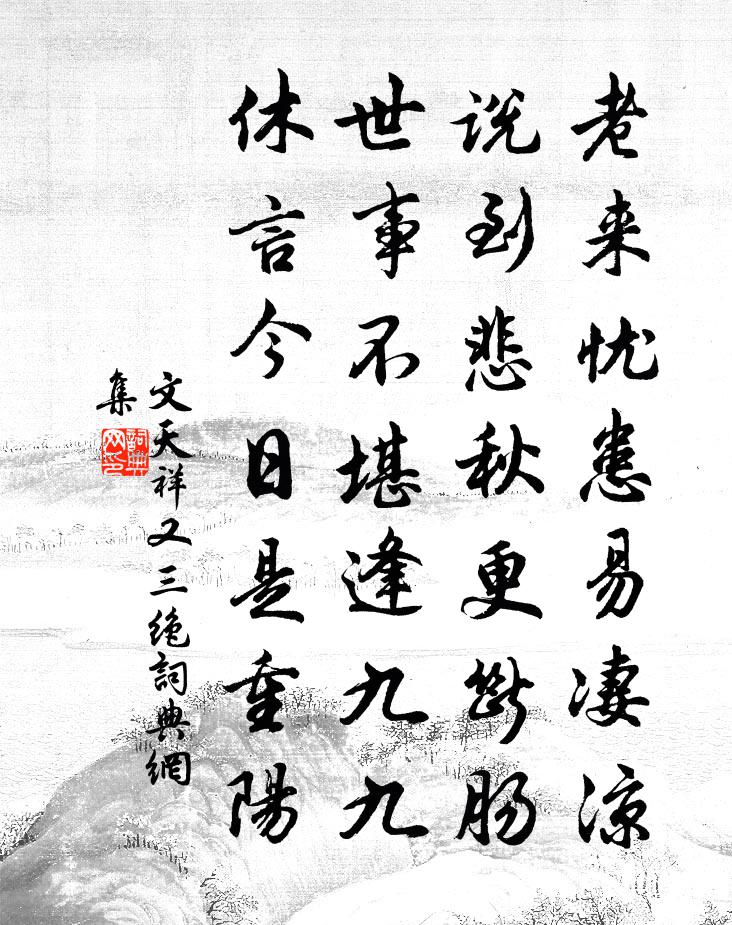 老来忧患易凄凉
说到悲秋更断肠
世事不堪逢九九
休言今日是重陽
文天祥又三绝詞典網
集
詞典网印